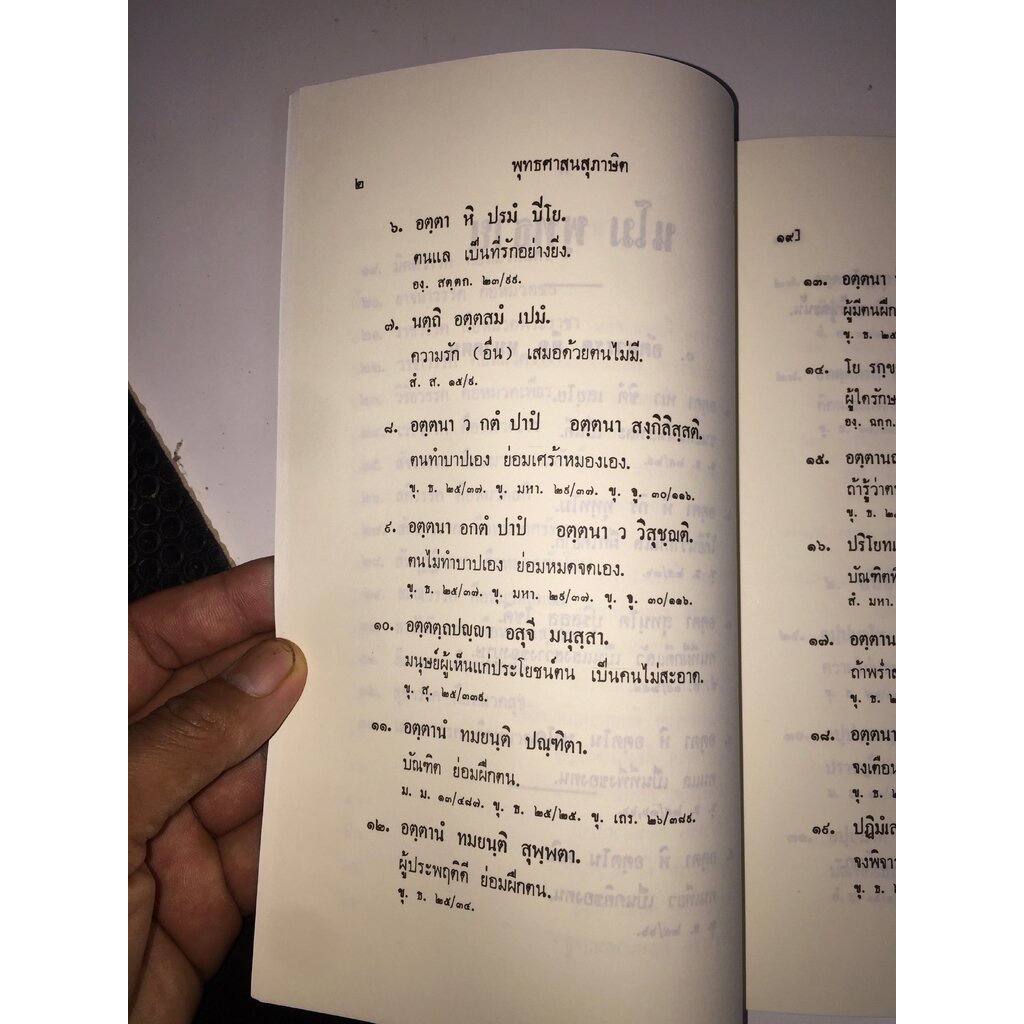 พุทธศาสนสุภาษิต
๒
๖. อตฺตา หิ ปรมํ ปิโย.
ตนแล เป็นที่รักอย่างยิ่ง.
องฺ. สตฺตก. ๒๓/๙๙.
๗. นตฺถิ อตฺตสมํ เปมํ.
ความรัก (อื่น) เสมอด้วยตนไม่มี.
สํ. ส. ๑๕/๙.
๘. อตฺตนา ว กตํ ปาปํ อตฺตนา สงฺกิลิสฺสติ.
ตนทำบาปเอง ย่อมเศร้าหมองเอง.
ขุ. ธ. ๒๕/๓๗. ขุ. มหา. ๒๙/๓๗. ขุ. จู. ๓๐/๑๑๖.
๙. อตฺตนา อกตํ ปาปํ อตฺตนา ว วิสุชฺฌติ.
ตนไม่ทำบาปเอง ย่อมหมดจดเอง.
ขุ. ธ. ๒๕/๓๗. ขุ. มหา. ๒๙/๓๗. ขุ. จู. ๓๐/๑๑๖.
๑๐. อตฺตตฺถปญฺญา อสุจี มนุสฺสา.
มนุษย์ผู้เห็นแก่ประโยชน์ตน เป็นคนไม่สะอาด.
ขุ. สุ. ๒๕/๓๓๙.
๑๑. อตฺตานํ ทมยนฺติ ปณฺฑิตา.
บัณฑิต ย่อมฝึกตน.
ม. ม. ๑๓/๔๘๗. ขุ. ธ. ๒๕/๒๕. ขุ. เถร. ๒๖/๓๘๙.
๑๒. อตฺตานํ ทมยนฺติ สุพฺพตา.
ผู้ประพฤติดี ย่อมฝึกตน.
ขุ. ธ. ๒๕/๓๔.
๑๓. อตฺตนา
ผู้มีตนฝึก
ขุ. ธ. ๒๕
๑๔. โย รกฺข
ผู้ใดรักษ
องฺ. ฉกฺก.
๑๕. อตฺตานญ
ถ้ารู้ว่าตน
ขุ. ธ.
๑๖. ปริโยท
บัณฑิต
สํ. มหา.
๑๗. อตฺตาน
ถ้าพร่ำส
ขุ. ธ.
๑๘. อตฺตนา
จงเตือน
ขุ. ธ.
๑๙. ปฏิมํเส
จงพิจา
ขุ. ธ.